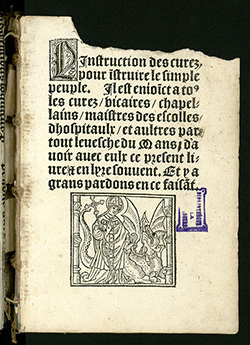 Linstruction des curez,
pour istruire le simple
peuple. Il est enioict a to⁹
les curez/vicaires/chapel-
lains/maistres des escolles
dhospitaulx/et aultres par
tout leuesche du Mans/da
voir auec eulx ce present li
ure/et en lyre souuent. Et y a
grans pardons en ce faisāt.